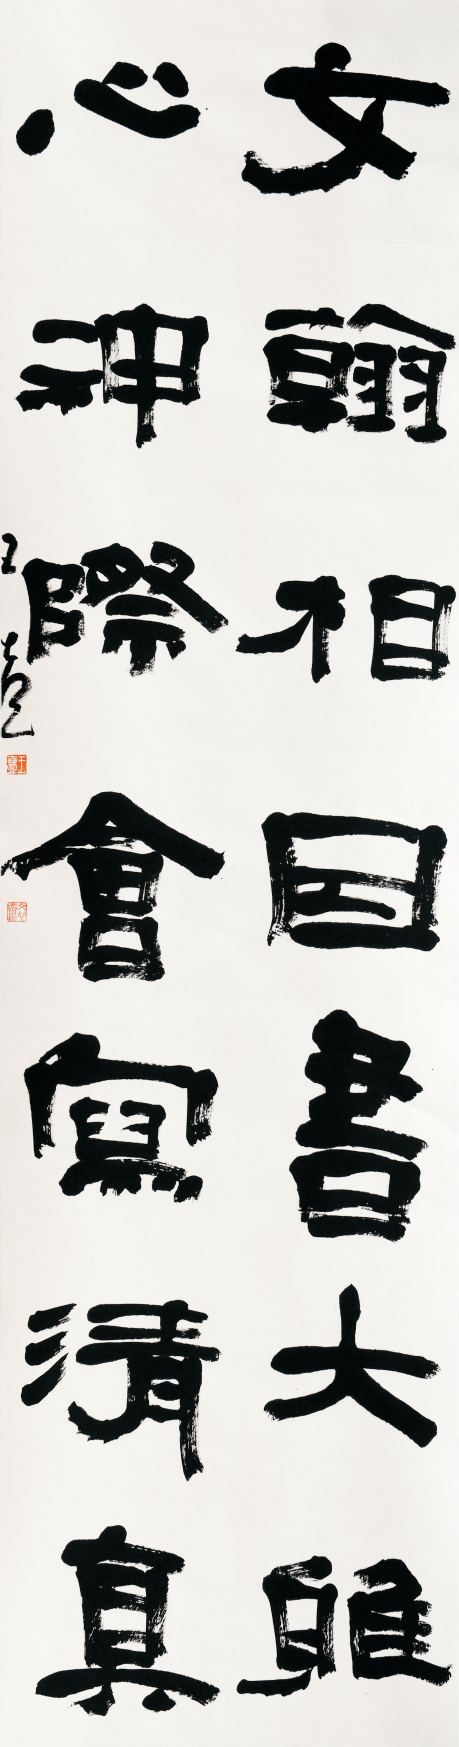 文翰相因書大雅
心神際會寫清真
王